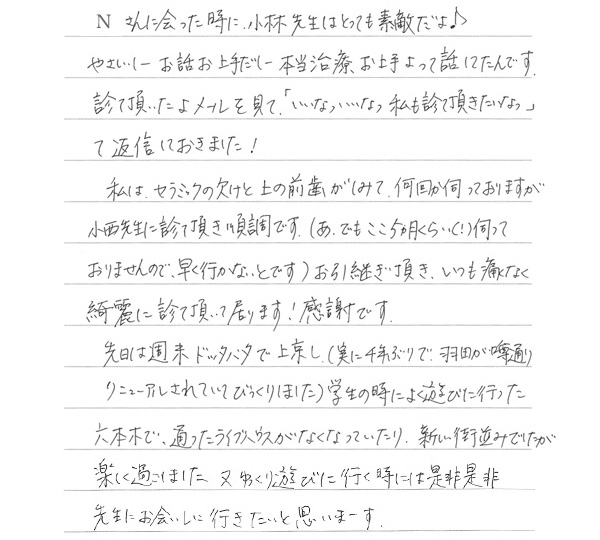 N さんに会った時に、小林先生はとっても素敵だよ♪
やさしいしー お話お上手だしー 本当治療、お上手よって話してたんです。
診て頂いたよメールを見て、「いいなっいいなっ私も診て頂きたいなっ」
て返信しておきました！
私は、セラミックの欠けと上の前歯がしみて、何回か伺っておりますが
小西先生に診て頂き順調です。(あ、でもここ5ヵ月くらい(!)伺って
おりませんので、早く行かないとです)お引継ぎ頂き、いつも痛くなく
綺麗に診て頂いて居ります！感謝です。
先日は週末ドッタバタで上京し、(実に4年ぶりで、羽田が噂通り
リニューアルされていてびっくりしました)学生の時によく遊びに行った
六本木で、通ったライブハウスがなくなっていたり、新しい街並みでしたが
楽しく過ごしました 又ゆっくり遊びに行く時には是非是非
先生にお会いしに行きたいと思いまーす。